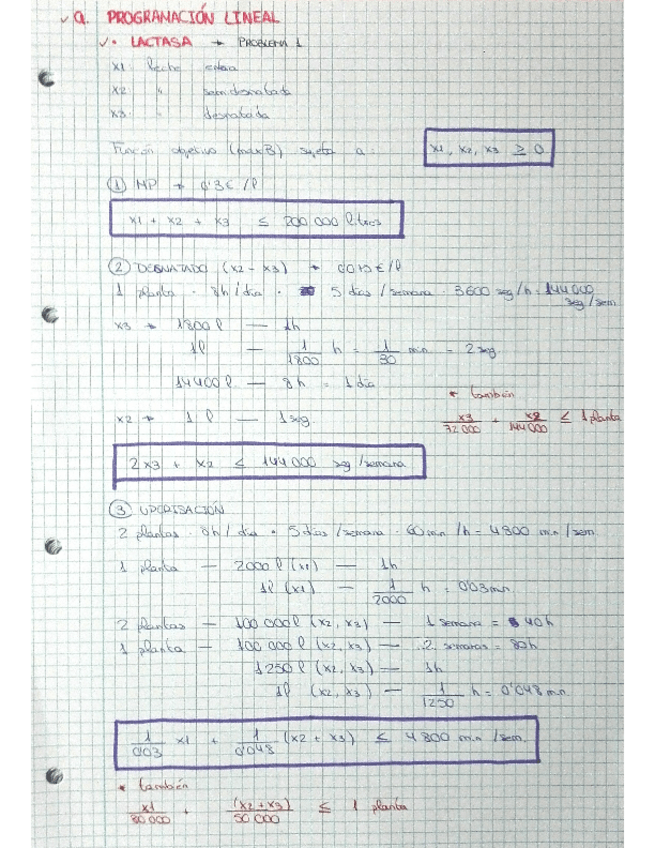 a. PROGRAMACIÓN LINEAL
• LACTASA → PROBLEMA 1
x1: leche entera
x2: " semidesnatada
x3: " desnatada
Función objetivo (max B) sujeto a: x1, x2, x3 ≥ 0
① MP → 0'3€/l
x1 + x2 + x3 ≤ 200 000 litros
② DESNATADO (x2 - x3) →
1 planta · 8h/día · 5 días/semana · 3600 seg/h = 144000 seg/sem
x3 → 1800 l — 1h
1l — 1/1800 h = 1/30 min = 2 seg
14400 l — 8h = 1 día
* también
x2 → 1 l — 1 seg
x3/72000 + x2/144000 ≤ 1 planta
2x3 + x2 ≤ 144000 seg/semana
③ UPERISACIÓN
2 plantas · 8h/día · 5 días/semana · 60 min/h = 4800 min/sem
1 planta — 2000 l (x1) — 1h
1l (x1) — 1/2000 h = 0'03 min
2 plantas — 100 000 l (x2, x3) — 1 semana = 40h
1 planta — 100 000 l (x2, x3) — 2 semanas = 80h
1250 l (x2, x3) — 1h
1l (x2, x3) — 1/1250 h = 0'048 min
1/0'03 x1 + 1/0'048 (x2 + x3) ≤ 4800 min/sem.
* también
x1/80000 + (x2+x3)/50000 ≤ 1 planta